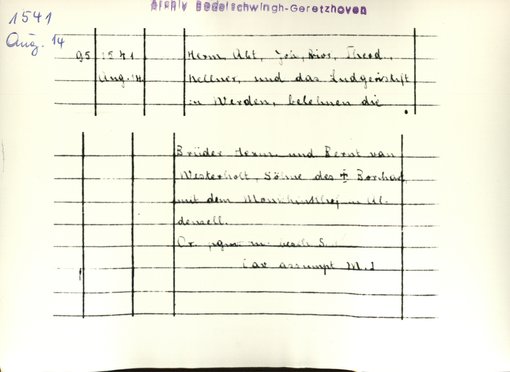 Archiv Bodelschwingh-Geretzhoven
1541
Aug. 14
95 1541 Herm. Abt, Joh, Prior, Theod.,
Aug. 14. Kellner, und das Ludgeristift
in Werden, belehnen die
Brüder Herm. und Bernt van
Westerholt, Söhne des † Borchad,
mit dem
densell.
Or. m. S.
Cav assumpt M. J